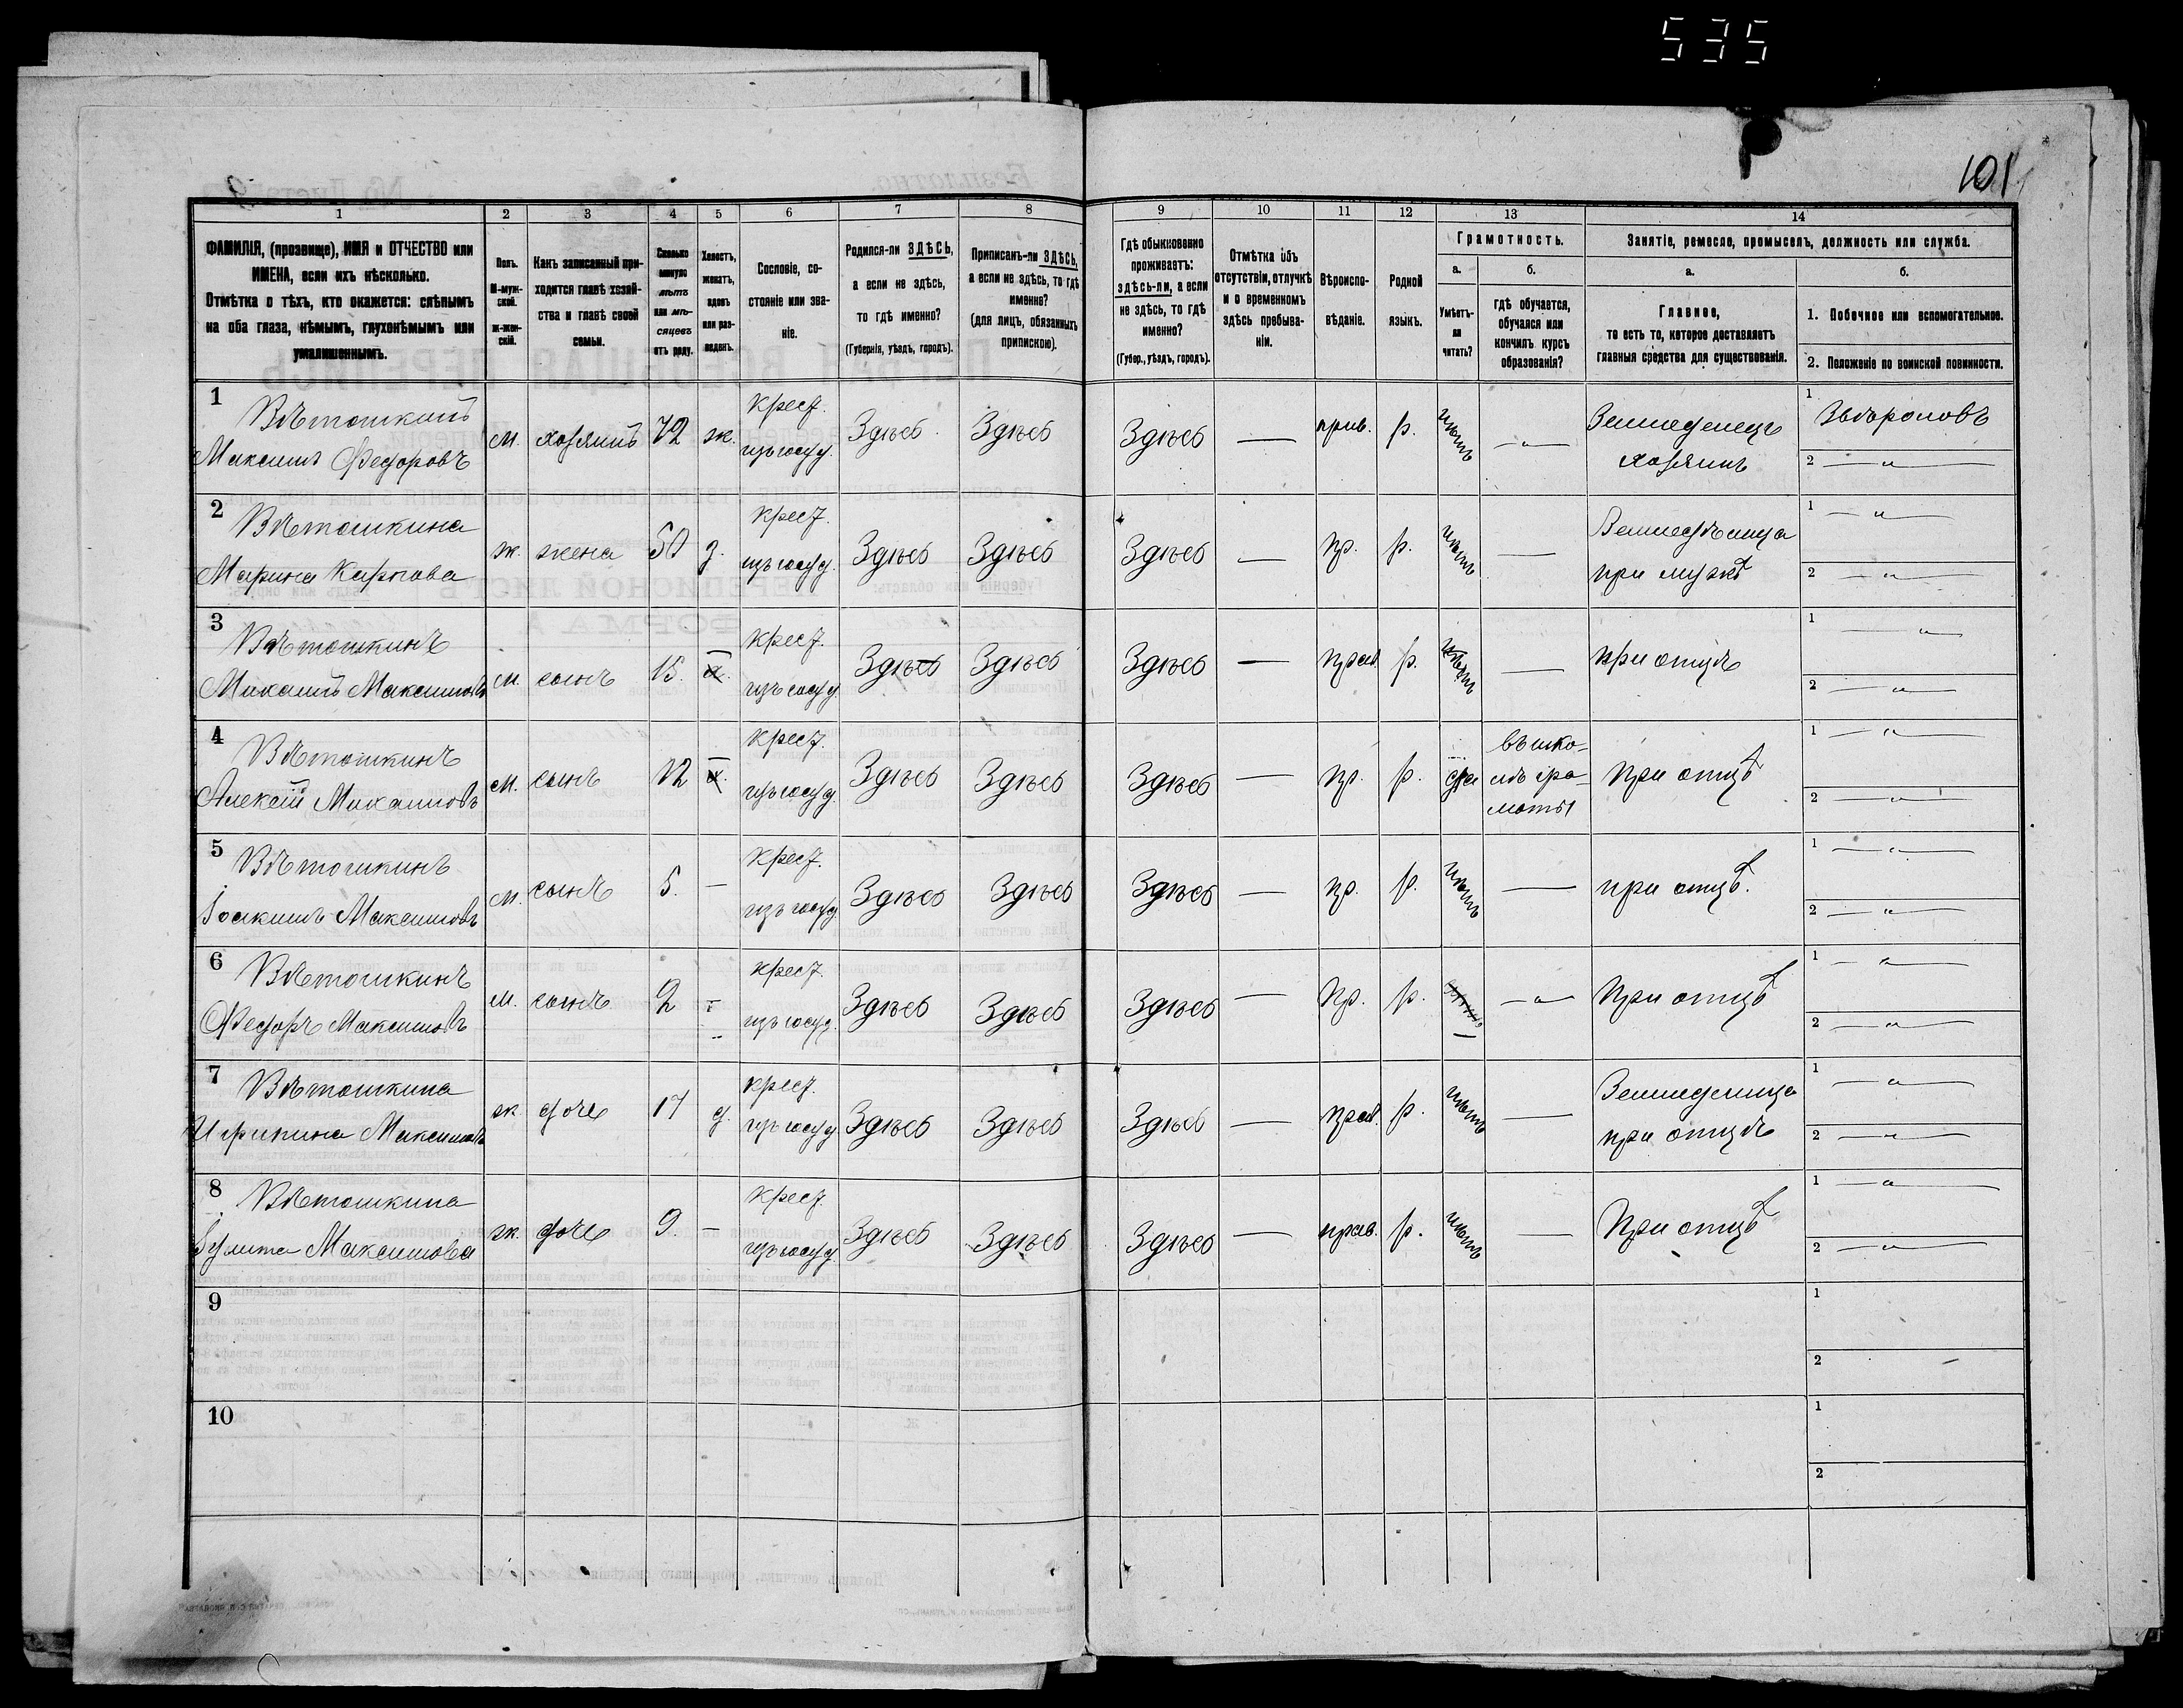 535
101
1
2
3
4
5
6
7
8
9
10
11
12
13
14
ФАМИЛІЯ, (прозвище), ИМЯ и ОТЧЕСТВО или
ИМЕНА, если ихъ нѣсколько.
Отмѣтка о тѣхъ, кто окажется: слѣпымъ
на оба глаза, нѣмымъ, глухонѣмымъ или
умалишеннымъ.
Полъ.
М-муж-
ской.
ж-жен-
скій.
Какъ записанный при-
ходится главѣ хозяй-
ства и главѣ своей
семьи.
Сколько
минуло
лѣтъ
или мѣ-
сяцевъ
отъ роду.
Холостъ,
женатъ,
вдовъ
или раз-
веденъ.
Сословіе, со-
стояніе или зва-
ніе.
Родился-ли ЗДѢСЬ,
а если не здѣсь,
то гдѣ именно?
(Губернія, уѣздъ, городъ).
Приписанъ-ли ЗДѢСЬ,
а если не здѣсь, то гдѣ
именно?
(для лицъ, обязанныхъ
припискою).
Гдѣ обыкновенно
проживаетъ:
здѣсь-ли, а если
не здѣсь, то гдѣ
именно?
(Губер., уѣздъ, городъ).
Отмѣтка объ
отсутствіи, отлучкѣ
и о временномъ
здѣсь пребыва-
ніи.
Вѣроиспо-
вѣданіе.
Родной
языкъ.
Грамотность.
а.
Умѣетъ-
ли
читать?
б.
гдѣ обучается,
обучался или
кончилъ курсъ
образованія?
Занятіе, ремесло, промыселъ, должность или служба.
а.
Главное,
то есть то, которое доставляетъ
главныя средства для существованія.
б.
1. Побочное или вспомогательное.
2. Положеніе по воинской повинности.
1
Вѣтошкинъ
Максимъ Федоровъ
м.
хозяинъ
ж.
крест.
изъ госуд.
Здѣсь
Здѣсь
Здѣсь
—
прав.
р.
нѣтъ
— „ —
Земледелецъ
хозяинъ
1
Звѣроловъ
2 — „ —
2
Вѣтошкина
Марина Карпова
ж.
жена
50
з.
крест.
изъ госуд.
Здѣсь
Здѣсь
Здѣсь
—
пр.
р.
нѣтъ
—
при мужѣ
1 — „ —
2 — „ —
3
Вѣтошкинъ
Максимовъ
м.
сынъ
15.
крест.
изъ госуд.
Здѣсь
Здѣсь
Здѣсь
—
прав.
р.
нѣтъ
—
при отцѣ
1 — „
2 — „ —
4
Вѣтошкинъ
Алексѣй Максимовъ
м.
сынъ
12
крест.
изъ госуд.
Здѣсь
Здѣсь
Здѣсь
—
пр.
р.
да
въ шко-
лѣ гра-
моты
При отцѣ
1 — „ —
2 — „ —
5
Вѣтошкинъ
Іоакимъ Максимовъ
м.
сынъ
5.
—
крест.
изъ госуд.
Здѣсь
Здѣсь
Здѣсь
—
пр.
р.
нѣтъ
—
при отцѣ.
1 — „ —
2 — „ —
6
Вѣтошкинъ
Федоръ Максимовъ
м.
сынъ
2
крест.
изъ госуд.
Здѣсь
Здѣсь
Здѣсь
—
Пр.
р.
—
— „ —
При отцѣ
1 — „ —
2 — „ —
7
Вѣтошкина
Максимова
ж.
дочь
17
д.
крест.
изъ госуд.
Здѣсь
Здѣсь
Здѣсь
—
прав.
р.
нѣтъ
—
Земледелица
при отцѣ
1 — „ —
2 — „ —
8
Вѣтошкина
Іулита Максимова
ж.
дочь
9.
—
крест.
изъ госуд.
Здѣсь
Здѣсь
Здѣсь
—
прав.
р.
нѣтъ
—
При отцѣ
1 — „ —
2 — „ —
9
1
2
10
1
2